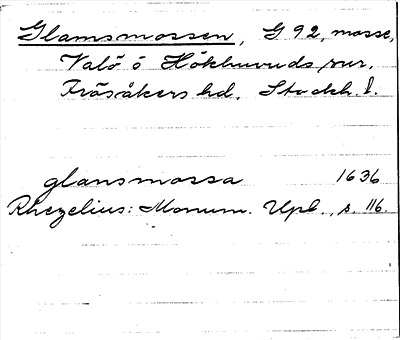 Glamsmossen, G 92, mosse,
Valö o Hökhuvuds snr,
Frösåkers hd, Stockh. l.
glansmossa 1636
Rhezelius: Monum. Upl., s. 116.